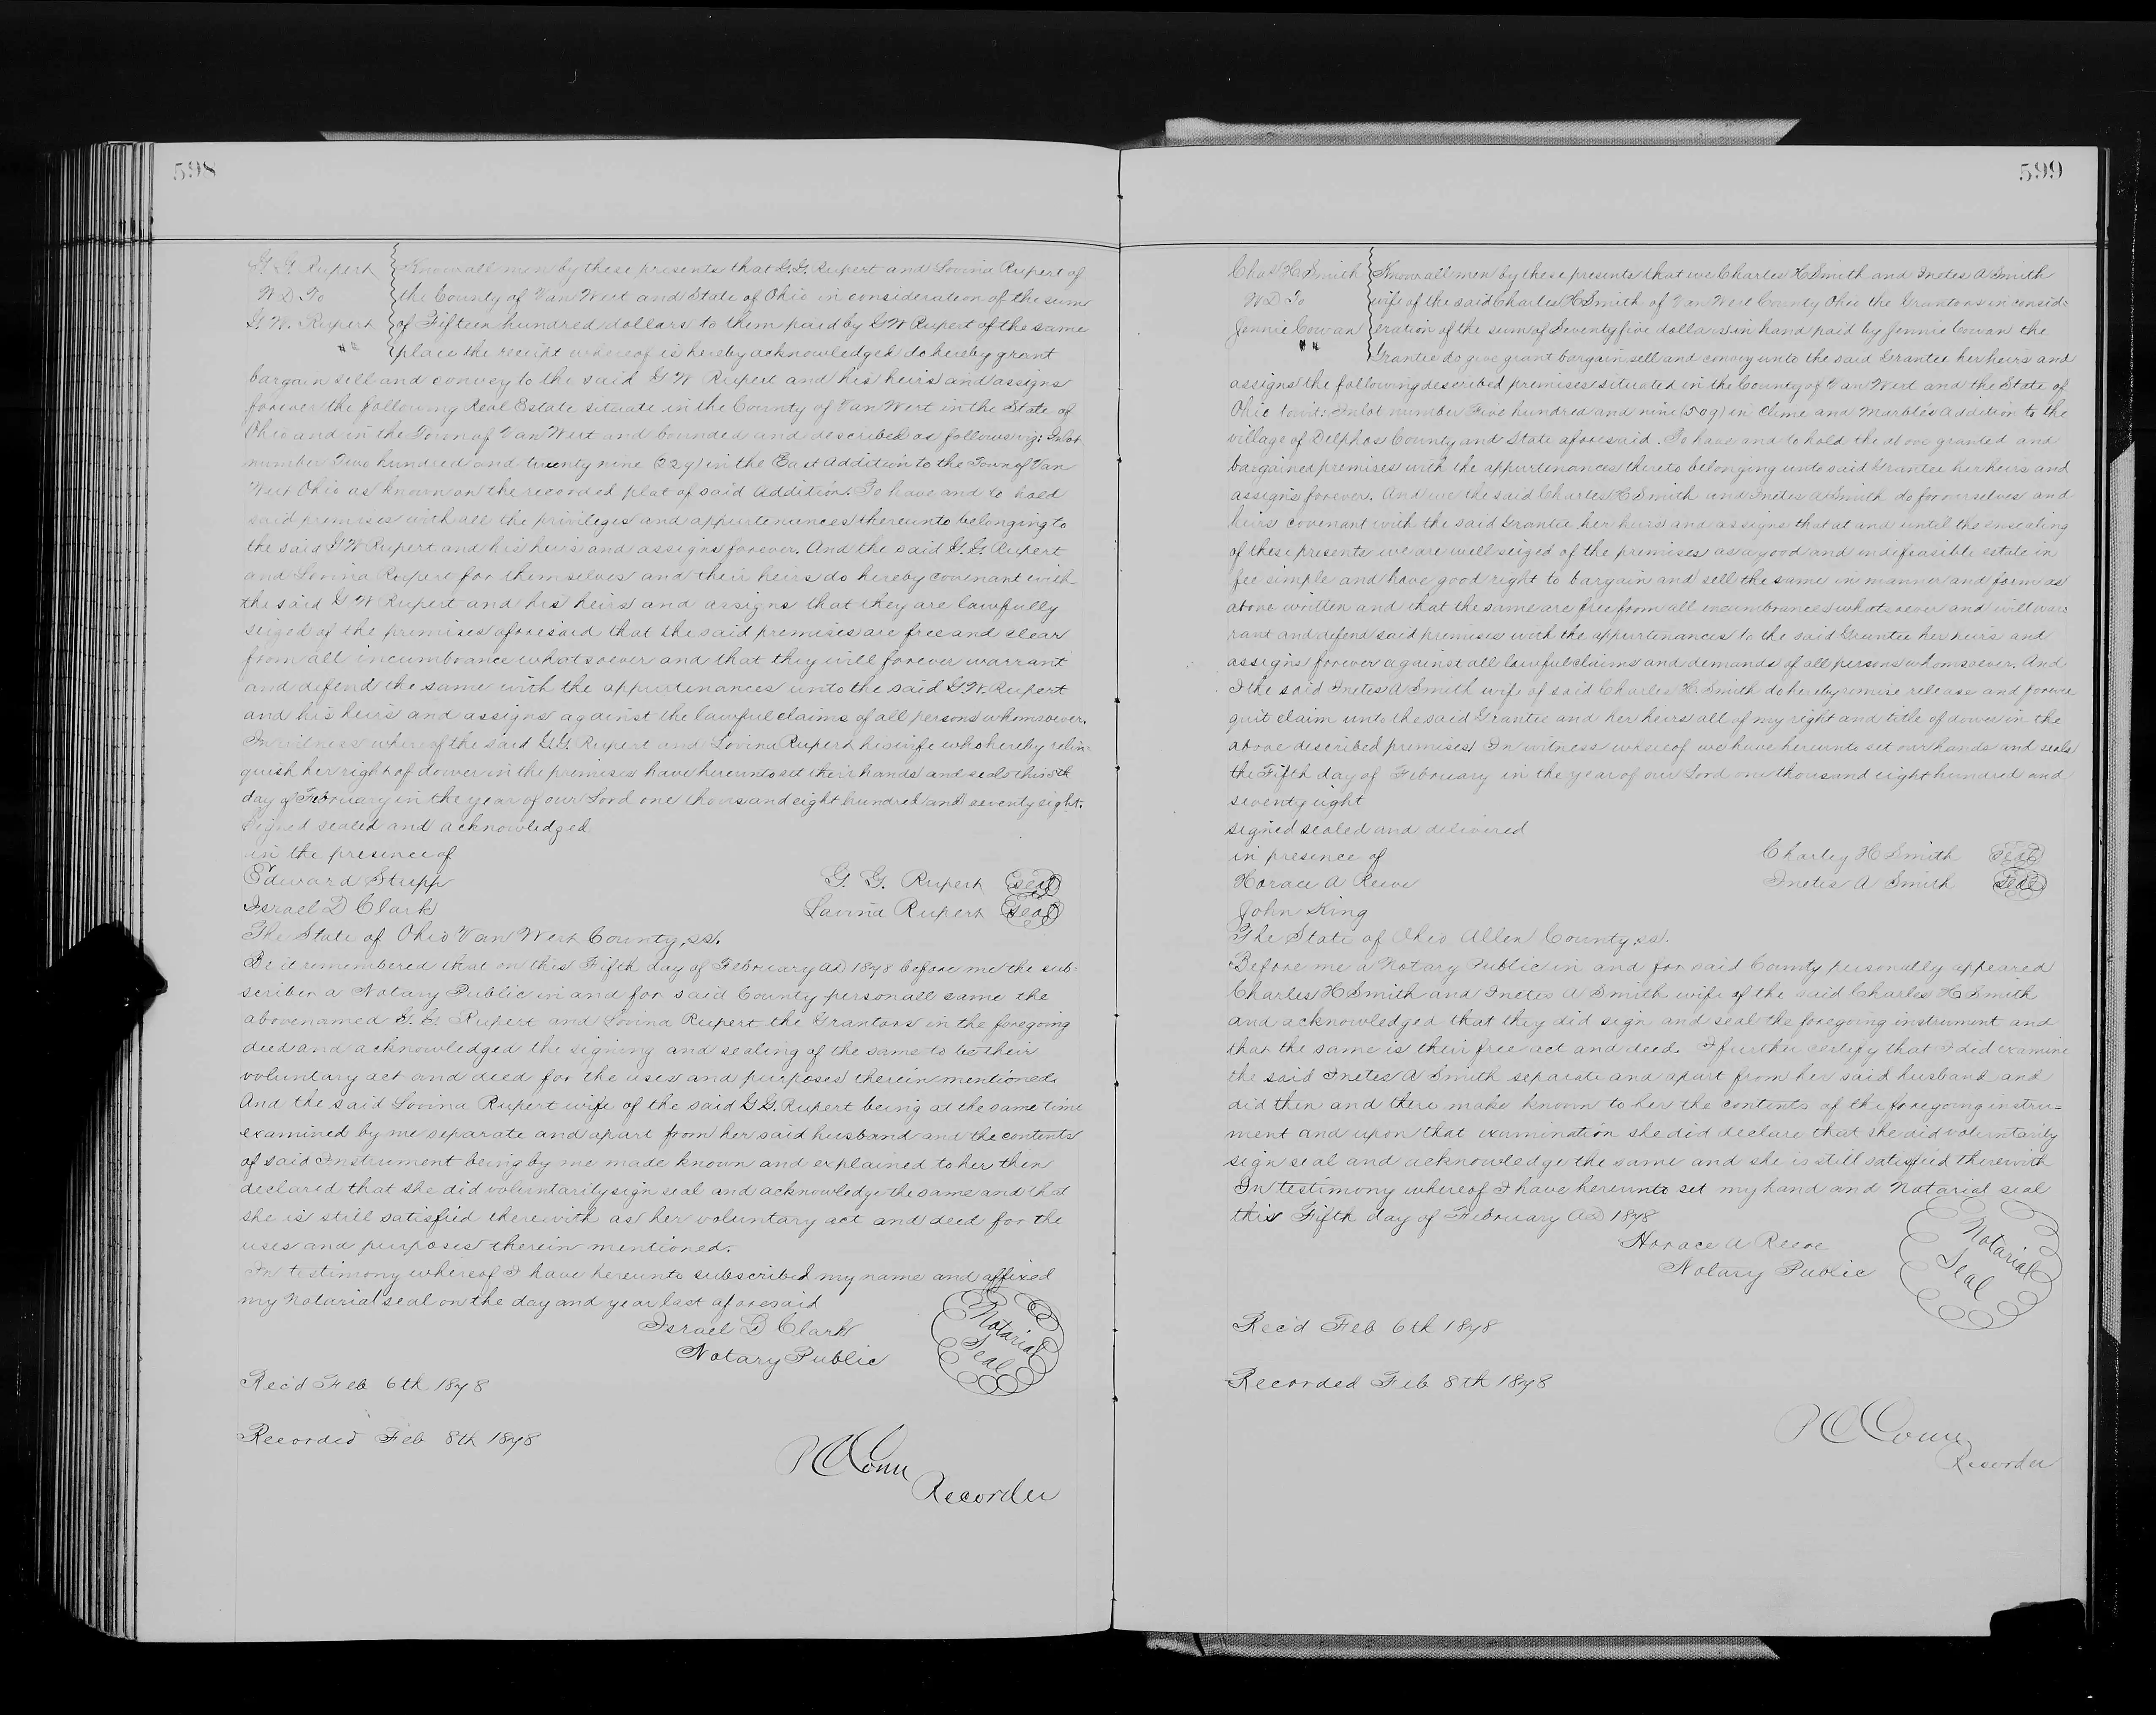 598
G. G. Rupert
W D To
G. W. Rupert
Know all men by these presents that G. G. Rupert and Lovina Rupert of
the County of Van Wert and State of Ohio in consideration of the sum
of Fifteen hundred dollars to them paid by G W Rupert of the same
place the receipt whereof is hereby acknowledged do hereby grant
bargain sell and convey to the said G W Rupert and his heirs and assigns
forever the following Real Estate situate in the County of Van Wert in the State of
Ohio and in the Town of Van Wert and bounded and described as follows viz: Inlot
number Two hundred and twenty nine (229) in the East Addition to the Town of Van
Wert Ohio as known on the recorded plat of said Addition. To have and to hold
said premises with all the privileges and appurtenances thereunto belonging to
the said G W Rupert and his heirs and assigns forever. And the said G. G. Rupert
and Lovina Rupert for themselves and their heirs do hereby covenant with
the said G W Rupert and his heirs and assigns that they are lawfully
seized of the premises aforesaid that the said premises are free and clear
from all incumbrance whatsoever and that they will forever warrant
and defend the same with the appurtenances unto the said G. W. Rupert
and his heirs and assigns against the lawful claims of all persons whomsoever.
In witness whereof the said G. G. Rupert and Lovina Rupert his wife who hereby relin-
quish her right of dower in the premises have hereunto set their hands and seals this 5th
day of February in the year of our Lord one thousand eight hundred and seventy eight.
Signed sealed and acknowledged
in the presence of
Edward Stupp G. G. Rupert seal
Israel D Clark Lavina Rupert seal
The State of Ohio Van Wert County, ss.
Be it remembered that on this Fifth day of February AD 1878 before me the sub-
scriber a Notary Public in and for said County personall came the
abovenamed G. G. Rupert and Lovina Rupert the Grantors in the foregoing
deed and acknowledged the signing and sealing of the same to be their
voluntary act and deed for the uses and purposes therein mentioned.
And the said Lovina Rupert wife of the said G G. Rupert being at the same time
examined by me separate and apart from her said husband and the contents
of said Instrument being by me made known and explained to her then
declared that she did voluntarily sign seal and acknowledge the same and that
she is still satisfied therewith as her voluntary act and deed for the
uses and purposes therein mentioned.
In testimony whereof I have hereunto subscribed my name and affixed
my Notarial seal on the day and year last aforesaid
Israel D Clark
Notary Public
Notarial
Seal
Rec'd Feb 6th 1878
Recorded Feb 8th 1878
Conn
Recorder
599
Chas H Smith
W D To
Jennie Cowan
Know all men by these presents that we Charles H Smith and Inetes A Smith
wife of the said Charles H Smith of Van Wert County Ohio the Grantors in consid-
eration of the sum of Seventy five dollars in hand paid by Jennie Cowan the
Grantee do give grant bargain sell and convey unto the said Grantee her heirs and
assigns the following described premises situated in the County of Van Wert and the State of
Ohio towit: Inlot number Five hundred and nine (509) in Clime and Marbles addition to the
village of Delphos County and State aforesaid. To have and to hold the above granted and
bargained premises with the appurtenances thereto belonging unto said Grantee her heirs and
assigns forever. And we the said Charles H Smith and Inetes A Smith do for ourselves and
heirs covenant with the said Grantee her heirs and assigns that at and until the ensealing
of these presents we are well seized of the premises as a good and indefeasible estate in
fee simple and have good right to bargain and sell the same in manner and form as
above written and that the same are free from all incumbrances whatsoever and will war-
rant and defend said premises with the appurtenances to the said Grantee her heirs and
assigns forever against all lawful claims and demands of all persons whomsoever. And
I the said Inetes A Smith wife of said Charles H. Smith do hereby remise release and forever
quit claim unto the said Grantee and her heirs all of my right and title of dower in the
above described premises In witness whereof we have hereunto set our hands and seals
the Fifth day of February in the year of our Lord one thousand eight hundred and
seventy eight
signed sealed and delivered
in presence of Charley H Smith seal
Horace A Reeve Inetes A Smith seal
John King
The State of Ohio Allen County, ss.
Before me a Notary Public in and for said County personally appeared
Charles H Smith and Inetes A Smith wife of the said Charles H Smith
and acknowledged that they did sign and seal the foregoing instrument and
that the same is their free act and deed. I further certify that I did examine
the said Inetes A Smith separate and apart from her said husband and
did then and there make known to her the contents of the foregoing instru-
ment and upon that examination she did declare that she did voluntarily
sign seal and acknowledge the same and she is still satisfied therewith
In testimony whereof I have hereunto set my hand and Notarial seal
this Fifth day of February AD 1878
Horace A Reeve
Notary Public
Notarial
Seal
Rec'd Feb 6th 1878
Recorded Feb 8th 1878
Conn
Recorder